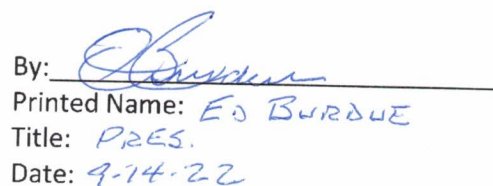 By:
Printed Name: ED BURDUE
Title: PRES.
Date: 9-14-22